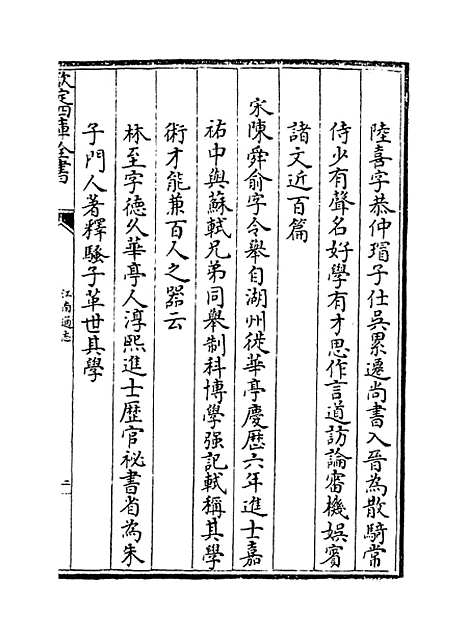 陸喜字恭仲瑁子仕吳累遷尚書入晉為散騎常
侍少有聲名好學有才思作言道訪論審機娯賓
諸文近百篇
宋陳舜俞字令舉自湖州徙華亭慶歴六年進士嘉
祐中與蘇軾兄弟同舉制科博學强記軾稱其學
術才能兼百人之器云
林至字德久華亭人淳熙進士歴官祕書省為朱
子門人著釋騷子革世其學
欽定四庫全書
江南通志